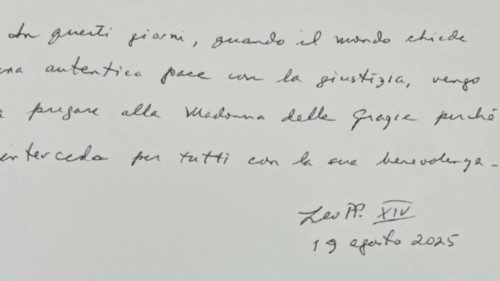 In questi giorni, quando il mondo chiede
una autentica pace con la giustizia, vengo
a pregare alla Madonna delle Grazie perché
interceda per tutti con la sua benevolenza.
Leo PP. XIV
19 agosto 2025